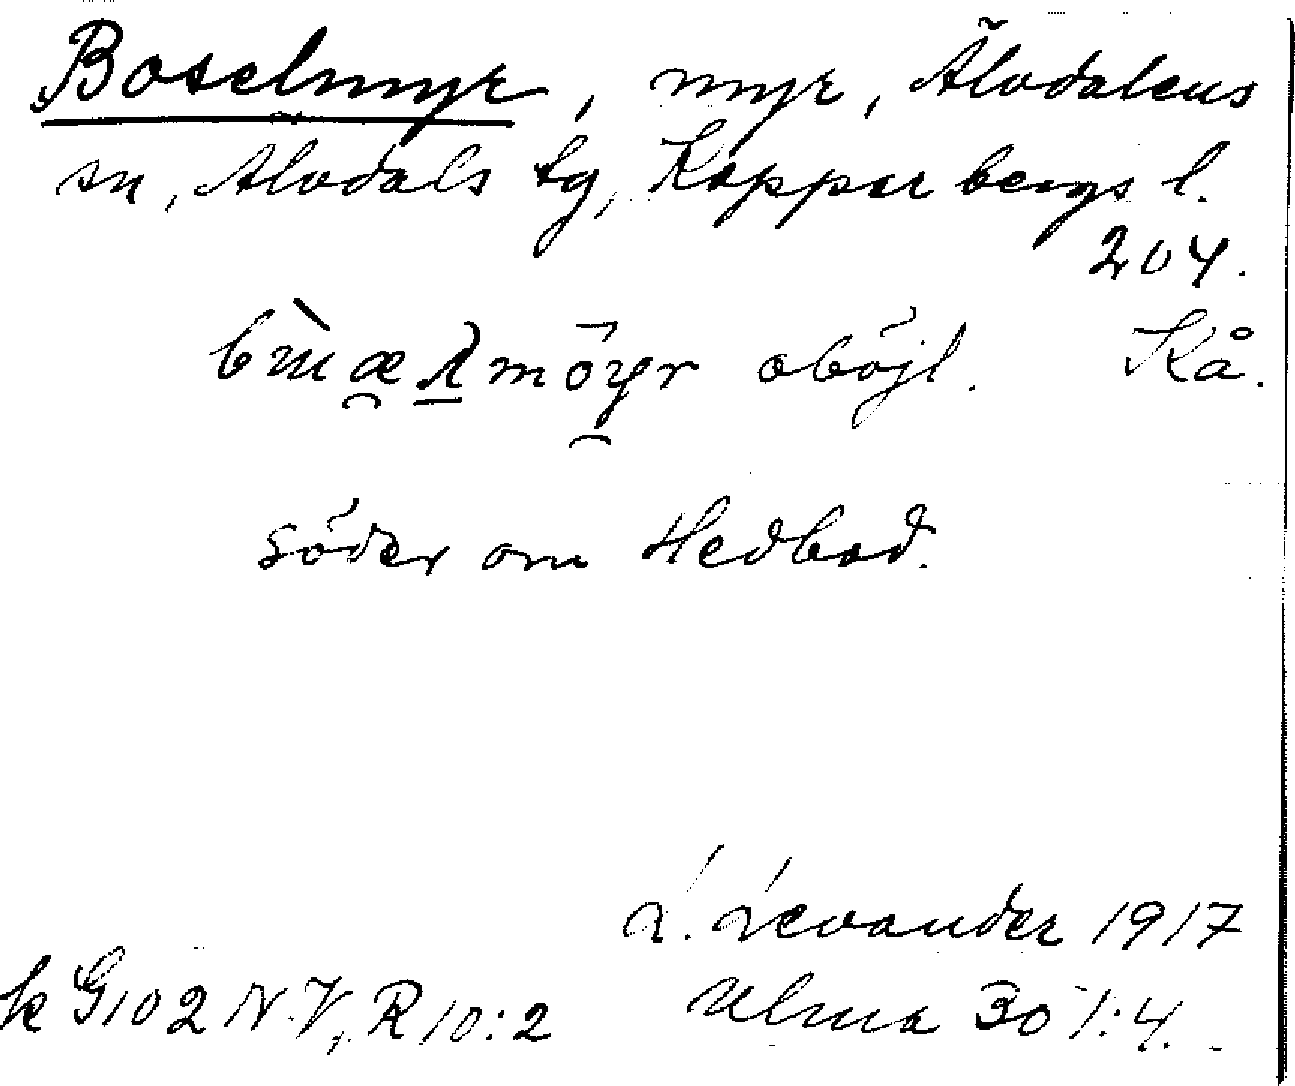 Boselmyr, myr, Älvdalens
sn, Älvdals tg, Kopparbergs l.
204.
oböjl. Kå.
söder om Hedbod.
L. Levander 1917
k G102 N.V, R10:2 Ulma 301:4.